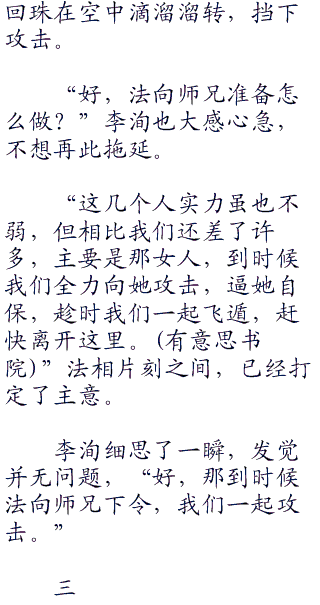 回珠在空中滴溜溜转，挡下
攻击。
“好，法向师兄准备怎
么做？”李洵也大感心急，
不想再此拖延。
“这几个人实力虽也不
弱，但相比我们还差了许
多，主要是那女人，到时候
我们全力向她攻击，逼她自
保，趁时我们一起飞遁，赶
快离开这里。(有意思书
院)”法相片刻之间，已经打
定了主意。
李洵细思了一瞬，发觉
并无问题，“好，那到时候
法向师兄下令，我们一起攻
击。”
三